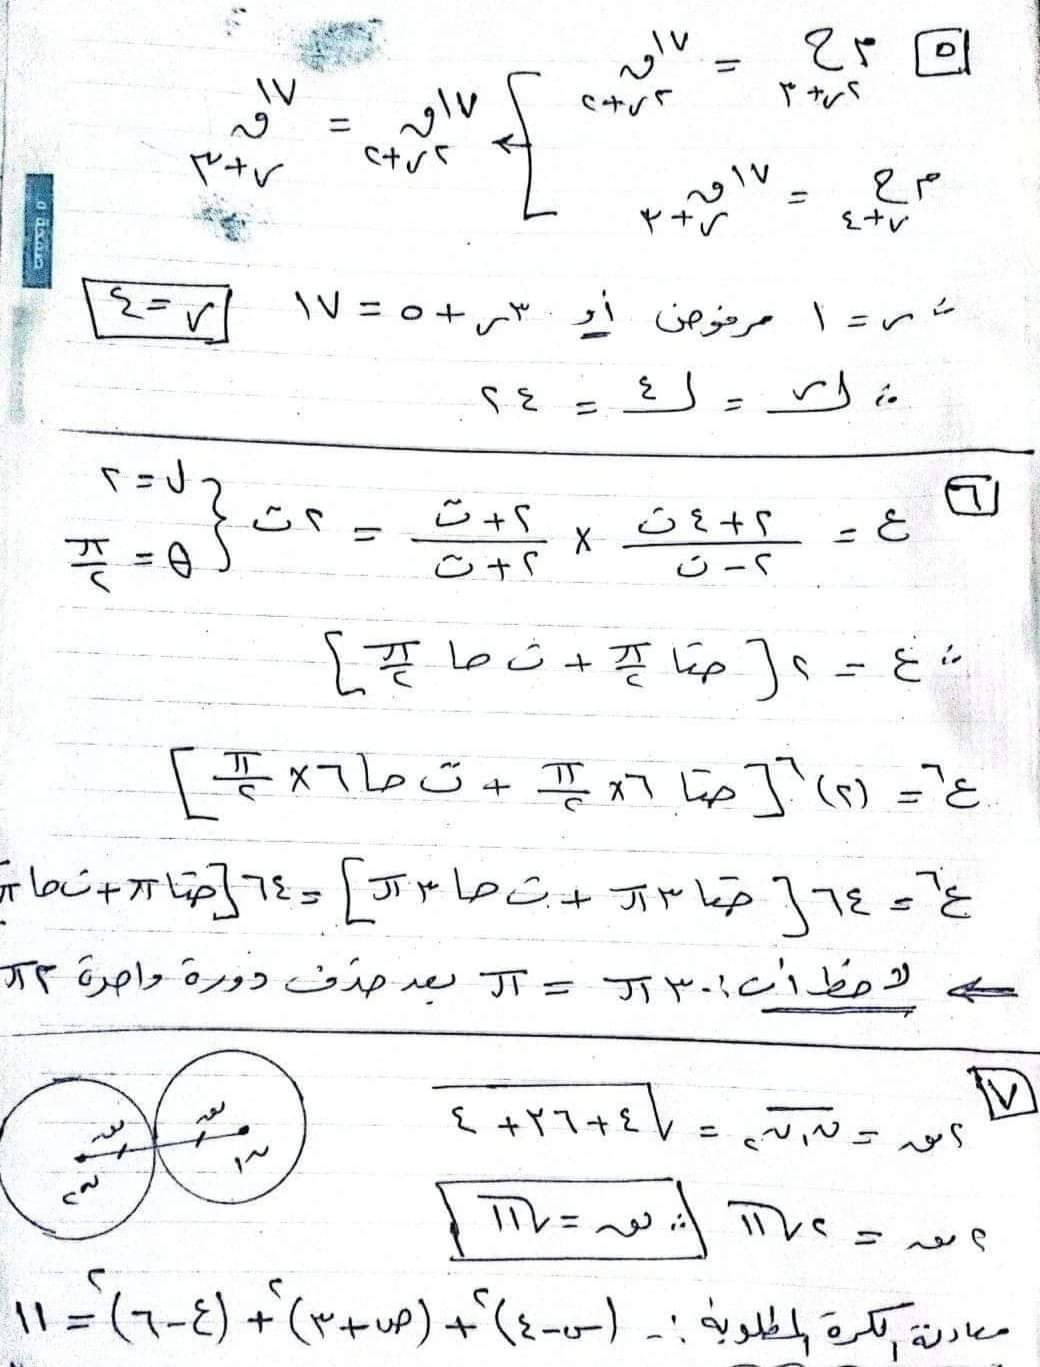 ٥ م ح ٢ر+٣ = ١٧ق ٢ر+٢
← ١٧ق ٢ر+٢ = ١٧ق ر+٣
م ح ر+٤ = ١٧ق ر+٣
∴ ر = ١ مرفوض أو ٣ر + ٥ = ١٧ ر = ٤
∴ ⌊ر = ⌊٤ = ٢٤
٦ ع = (٢+٤ت)/(٢-ت) × (٢+ت)/(٢+ت) = ٢ت { ل = ٢ θ = π/٢
∴ ع = ٢ [حتا π/٢ + ت حا π/٢]
ع^٦ = (٢)^٦ [حتا ٦× π/٢ + ت حا ٦× π/٢]
ع^٦ = ٦٤ [حتا ٣π + ت حا ٣π] = ٦٤ [حتا π + ت حا π
← لاحظ أن :- ٣π = π بعد حذف دورة واحدة ٢π
٧ ٢نق = ن١ن٢ = √(٤+٣٦+٤)
نق نق ن١ ن٢
٢نق = ٢√١١ ∴ نق = √١١
معادلة الكرة المطلوبة :- (س-٤)^٢ + (ص+٣)^٢ + (ع-٦)^٢ = ١١